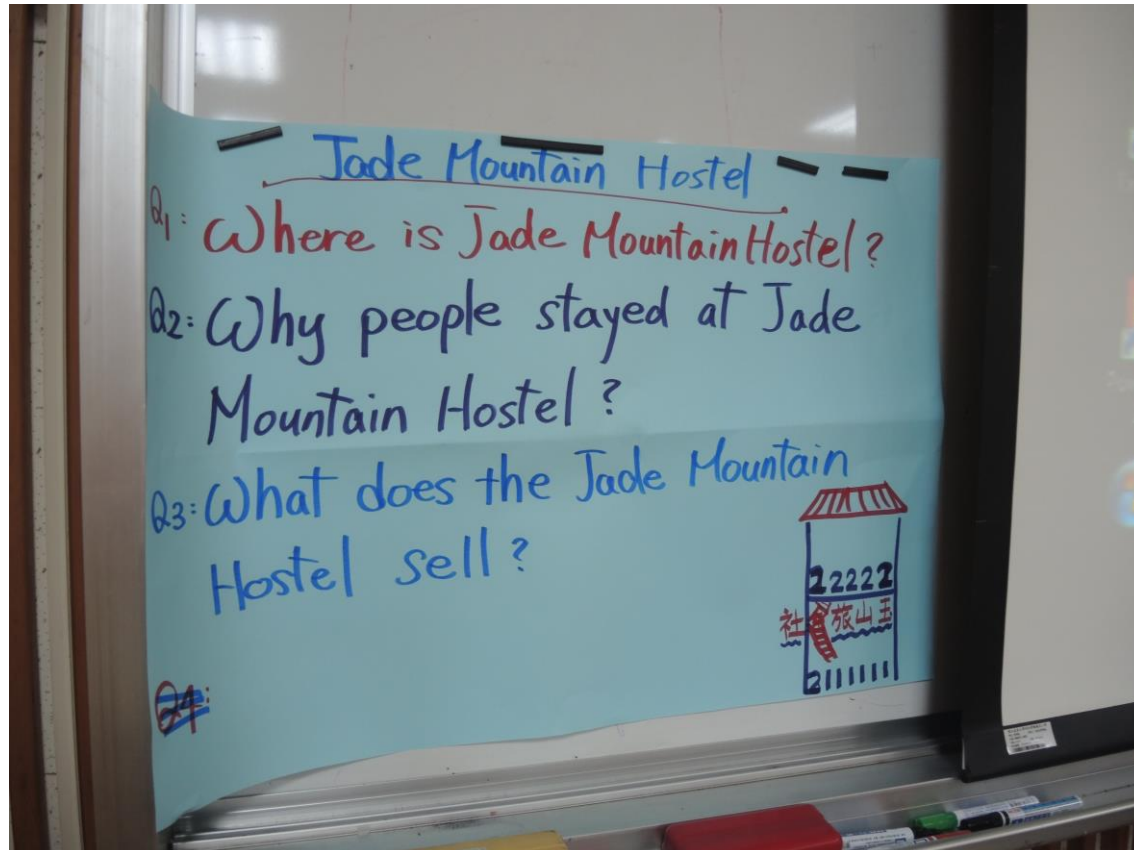 Jade Mountain Hostel
Q1: Where is Jade Mountain Hostel?
Q2: Why people stayed at Jade
Mountain Hostel?
Q3: What does the Jade Mountain
Hostel sell?
22222
社會旅山玉
2111111
Q4: